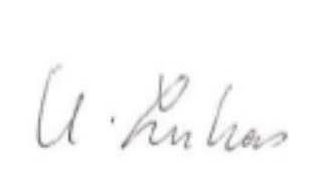 U. Lukas